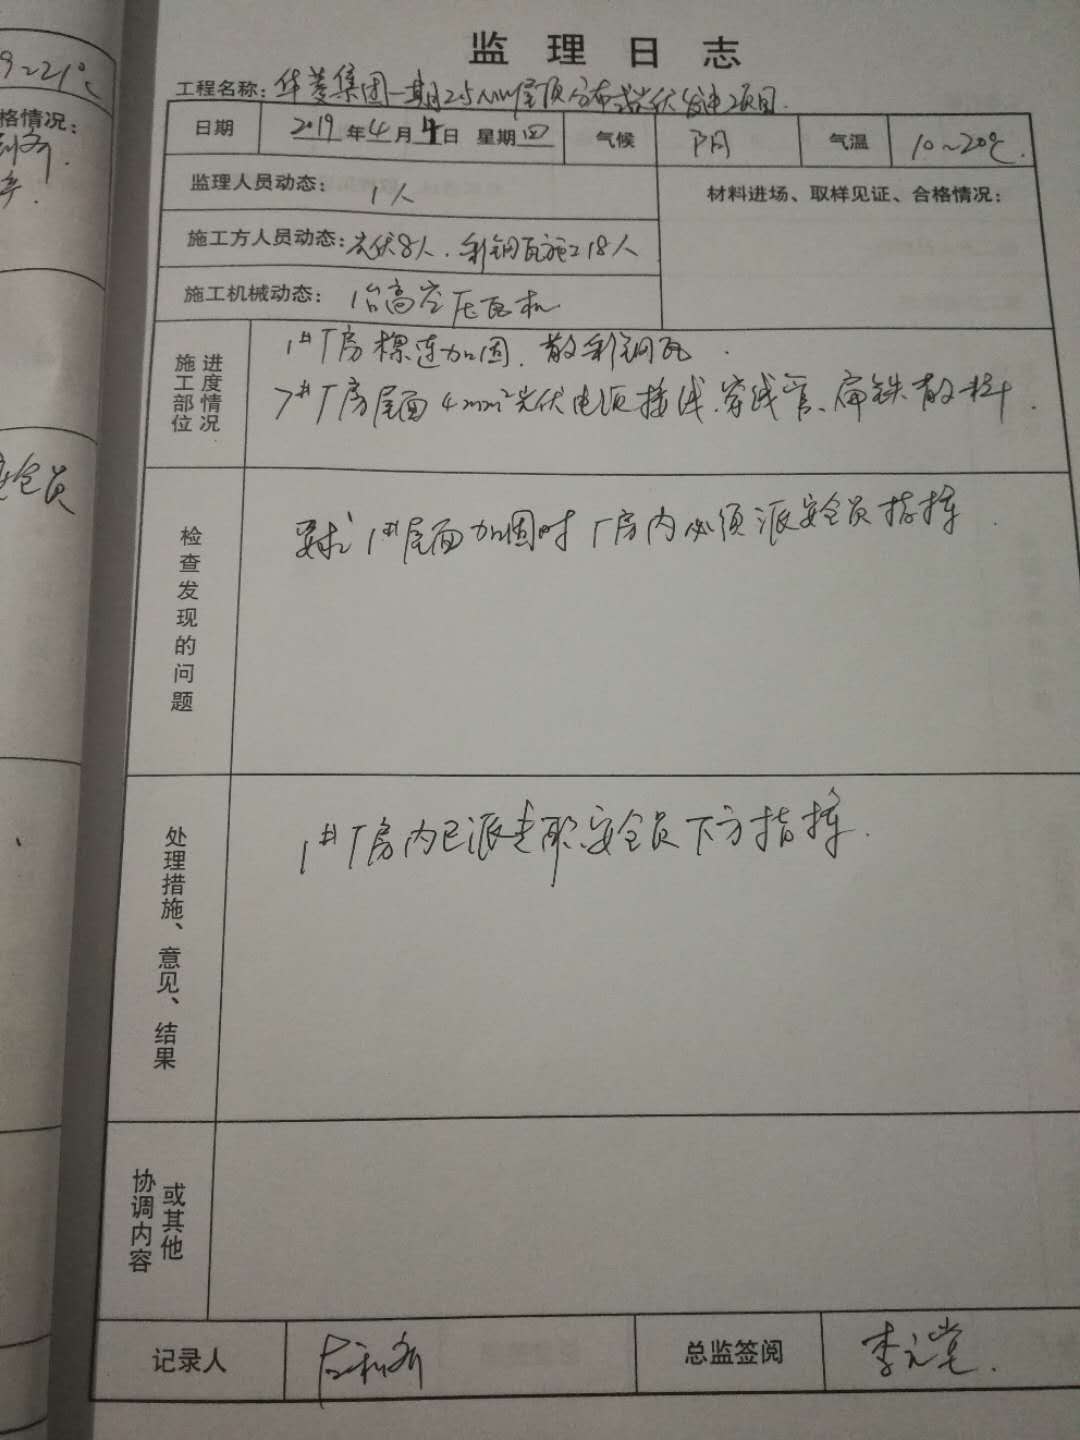 9~21℃
格情况：
监理日志
工程名称：华菱集团一期25MW屋顶分布式光伏发电项目.
日期 2019年4月4日 星期四 气候 阴 气温 10~20℃.
监理人员动态： 1人
材料进场、取样见证、合格情况：
施工方人员动态：光伏8人.彩钢瓦施工18人
施工机械动态： 1台高空压瓦机
施工部位进度情况
1#厂房檩连加固.散彩钢瓦.
7#厂房屋面4mm²光伏电缆接线.穿线管、扁铁散料.
全员
检查发现的问题
要求1#屋面加固时厂房内必须派安全员指挥.
处理措施、意见、结果
1#厂房内已派专职安全员下方指挥.
协调内容或其他
记录人
总监签阅 李元堂.